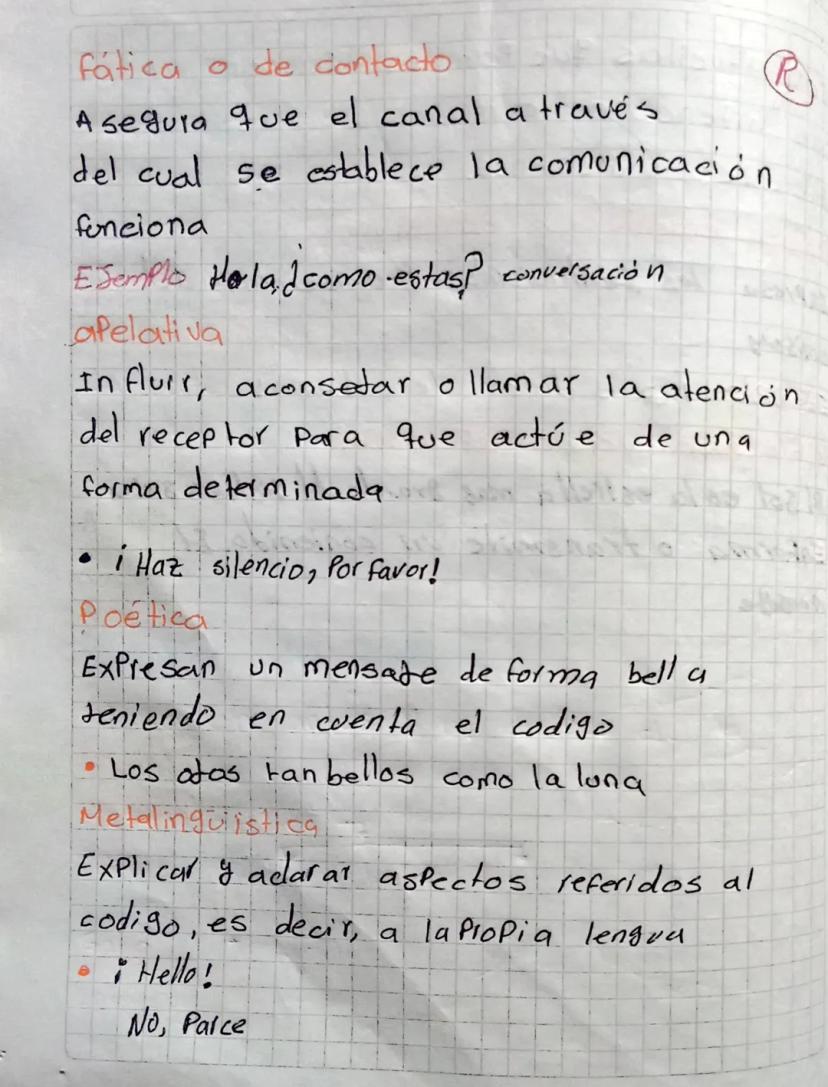 fática o de contacto
R
Asegura que el canal a través
del cual se establece la comunicación
funciona
Ejemplo Hola, ¿como estas? conversación
apelativa
Influir, aconsejar o llamar la atención
del receptor para que actúe de una
forma determinada
• ¡Haz silencio, Por favor!
Poética
Expresan un mensaje de forma bella
teniendo en cuenta el codigo
• Los ojos tan bellos como la luna
Metalingüística
Explicar y aclarar aspectos referidos al
codigo, es decir, a la propia lengua
• ¡Hello!
No, Parce